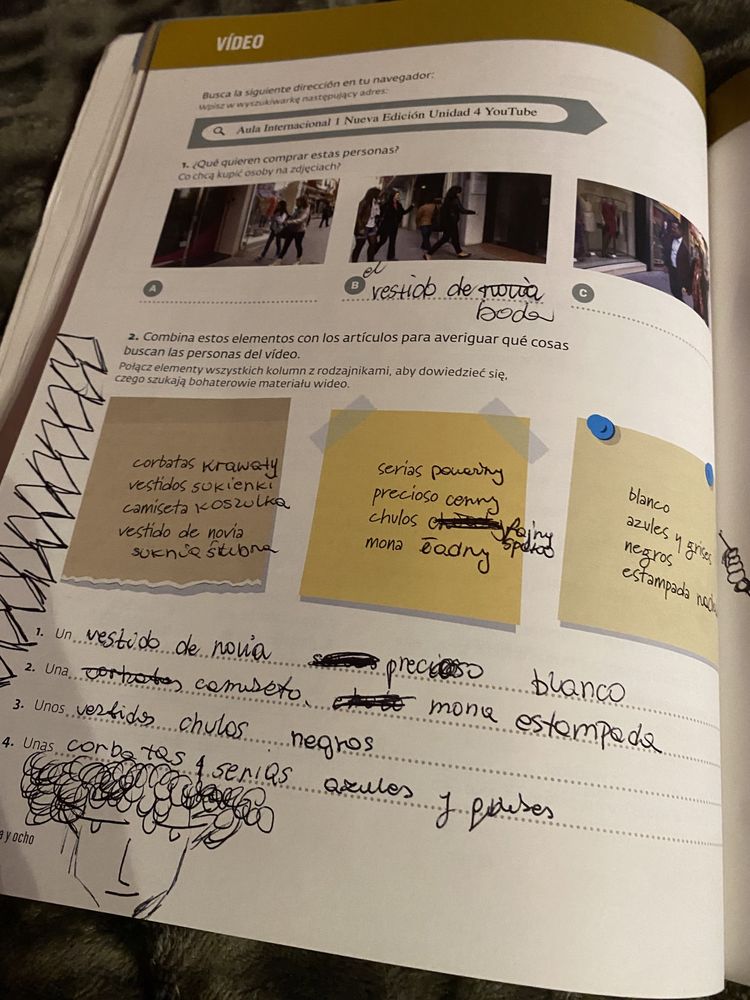 VÍDEO
Busca la siguiente dirección en tu navegador:
Wpisz w wyszukiwarkę następujący adres:
Aula Internacional 1 Nueva Edición Unidad 4 YouTube
1. ¿Qué quieren comprar estas personas?
Co chcą kupić osoby na zdjęciach?
el
A
B vestido de novia
C
boda
2. Combina estos elementos con los artículos para averiguar qué cosas
buscan las personas del vídeo.
Połącz elementy wszystkich kolumn z rodzajnikami, aby dowiedzieć się,
czego szukają bohaterowie materiału wideo.
corbatas krawaty
vestidos sukienki
camiseta koszulka
vestido de novia
suknia ślubna
serias poważny
precioso cenny
chulos fajny
spoko
mona ładny
blanco
azules y grises
negros
estampada
1. Un vestido de novia precioso blanco
2. Una corbatas camiseta, mona estampada
3. Unos vestidos chulos negros
4. Unas corbatas serias azules y grises
a y ocho